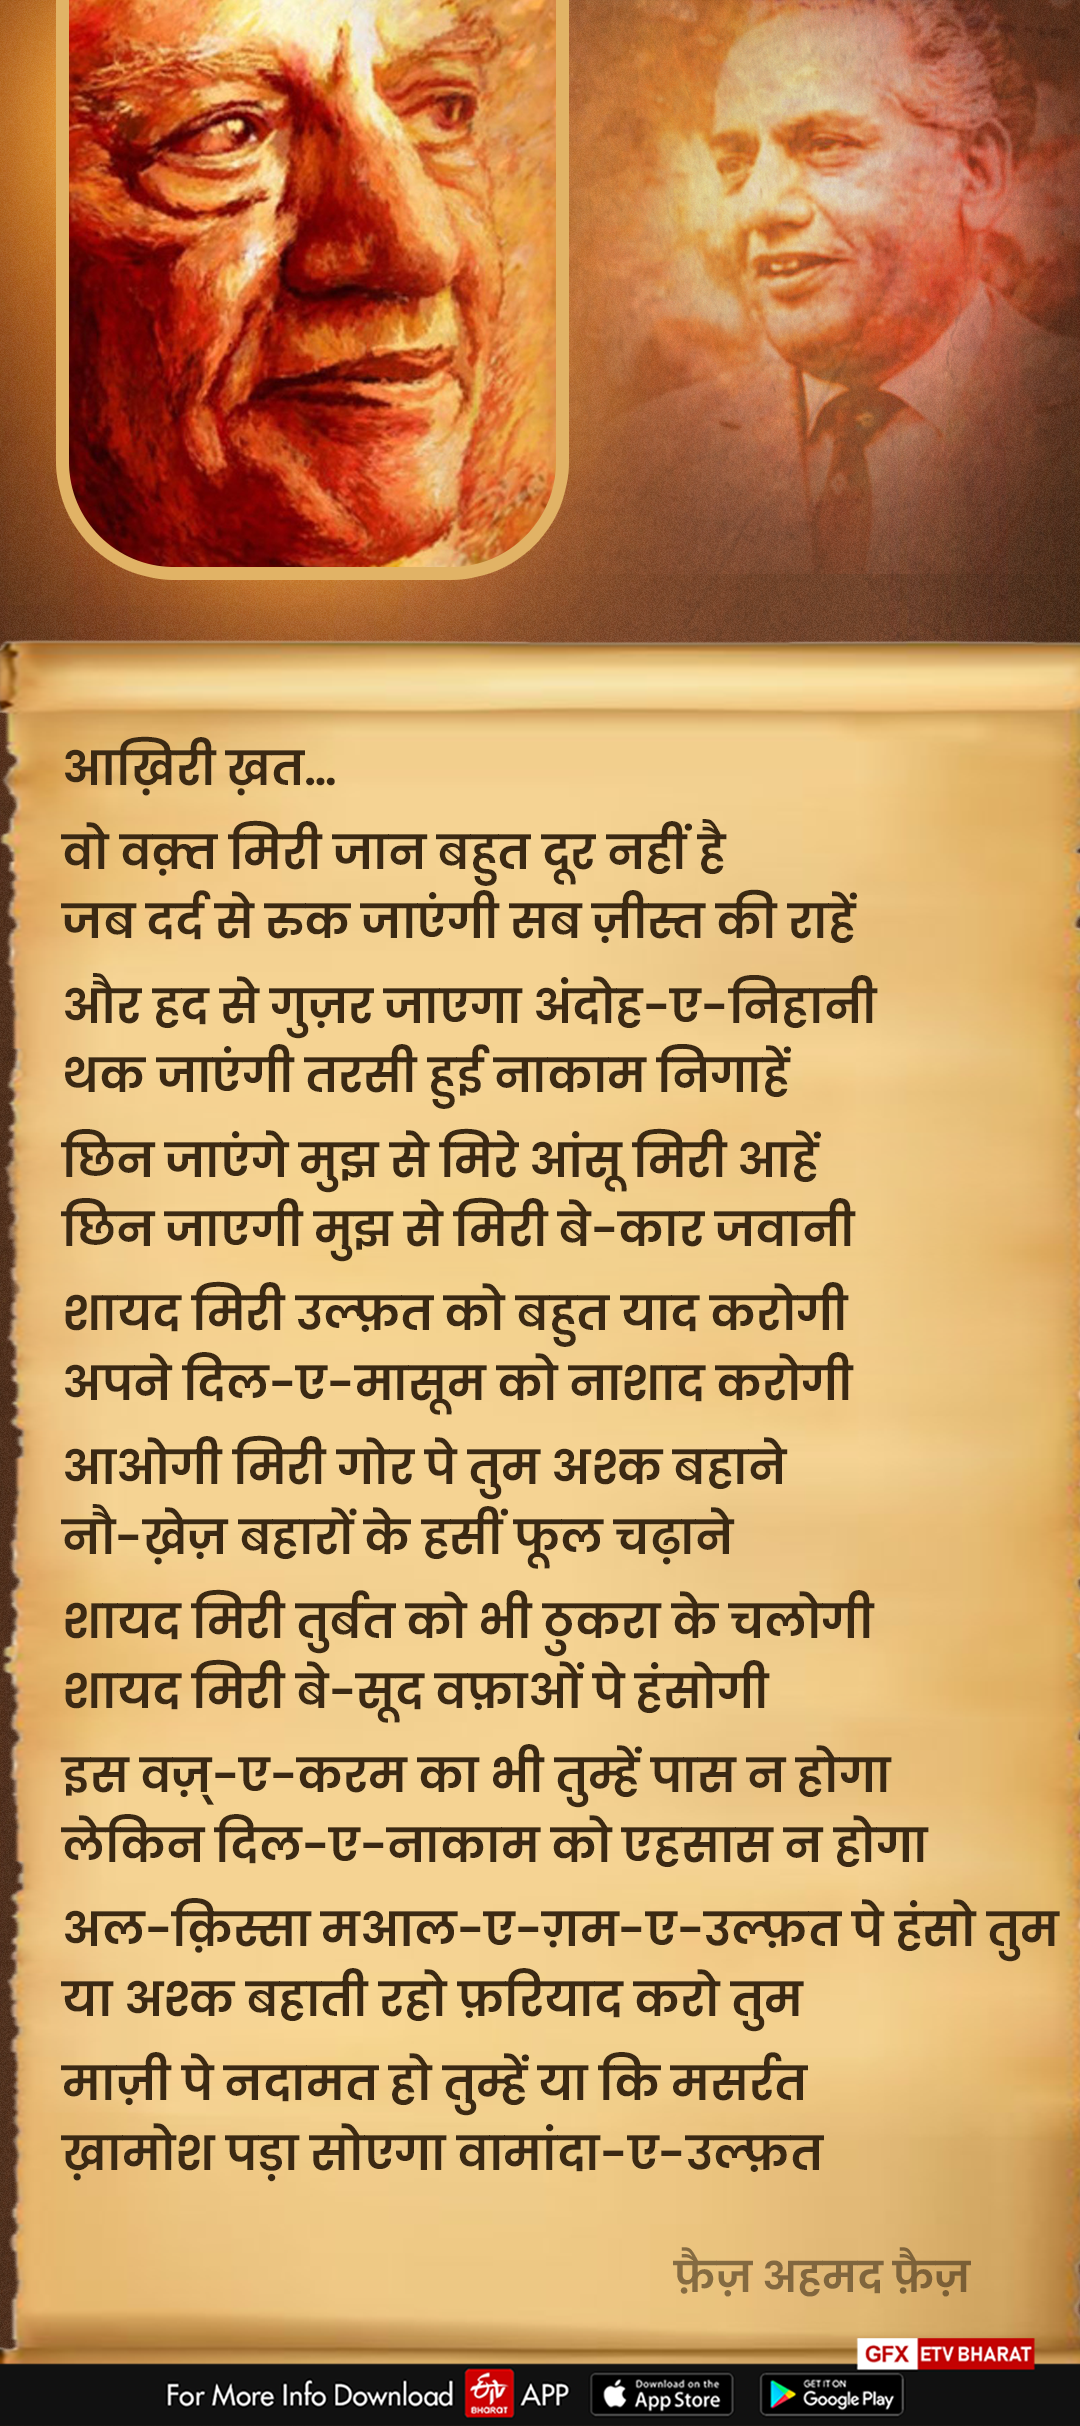 आख़िरी ख़त...
वो वक़्त मिरी जान बहुत दूर नहीं है
जब दर्द से रुक जाएंगी सब ज़ीस्त की राहें
और हद से गुज़र जाएगा अंदोह-ए-निहानी
थक जाएंगी तरसी हुई नाकाम निगाहें
छिन जाएंगे मुझ से मिरे आंसू मिरी आहें
छिन जाएगी मुझ से मिरी बे-कार जवानी
शायद मिरी उल्फ़त को बहुत याद करोगी
अपने दिल-ए-मासूम को नाशाद करोगी
आओगी मिरी गोर पे तुम अश्क बहाने
नौ-ख़ेज़ बहारों के हसीं फूल चढ़ाने
शायद मिरी तुर्बत को भी ठुकरा के चलोगी
शायद मिरी बे-सूद वफ़ाओं पे हंसोगी
इस वज़्-ए-करम का भी तुम्हें पास न होगा
लेकिन दिल-ए-नाकाम को एहसास न होगा
अल-क़िस्सा मआल-ए-ग़म-ए-उल्फ़त पे हंसो तुम
या अश्क बहाती रहो फ़रियाद करो तुम
माज़ी पे नदामत हो तुम्हें या कि मसर्रत
ख़ामोश पड़ा सोएगा वामांदा-ए-उल्फ़त
फ़ैज़ अहमद फ़ैज़
GFX ETV BHARAT
For More Info Download ETV BHARAT APP Download on the App Store GET IT ON Google Play